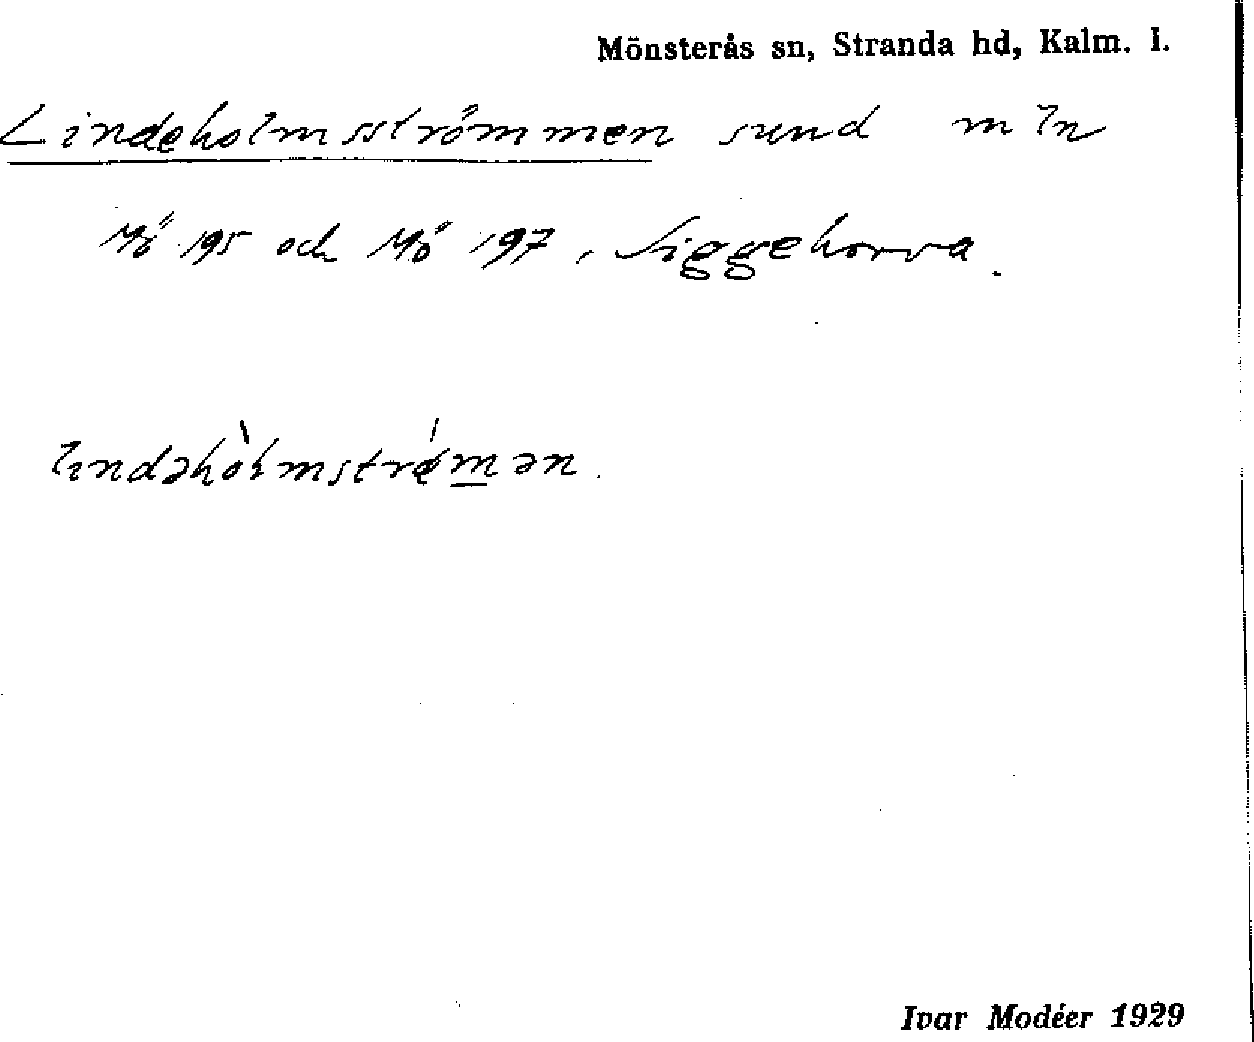 Mönsterås sn, Stranda hd, Kalm. l.
Lindeholmsströmmen sund mln
Mö 195 och Mö 197, Siggehorva.
lındəhòlmstrǿmən.
Ivar Modéer 1929